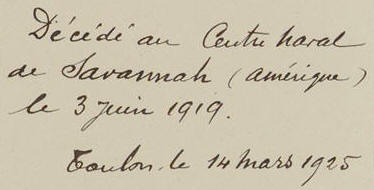 Décédé au Centre naval
de Savannah (Amérique)
le 3 juin 1919.
Toulon. le 14 Mars 1925